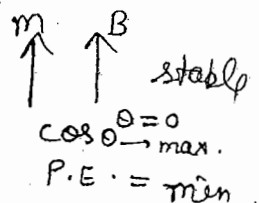 m B
stable
θ = 0
cos θ → max.
P.E. = min